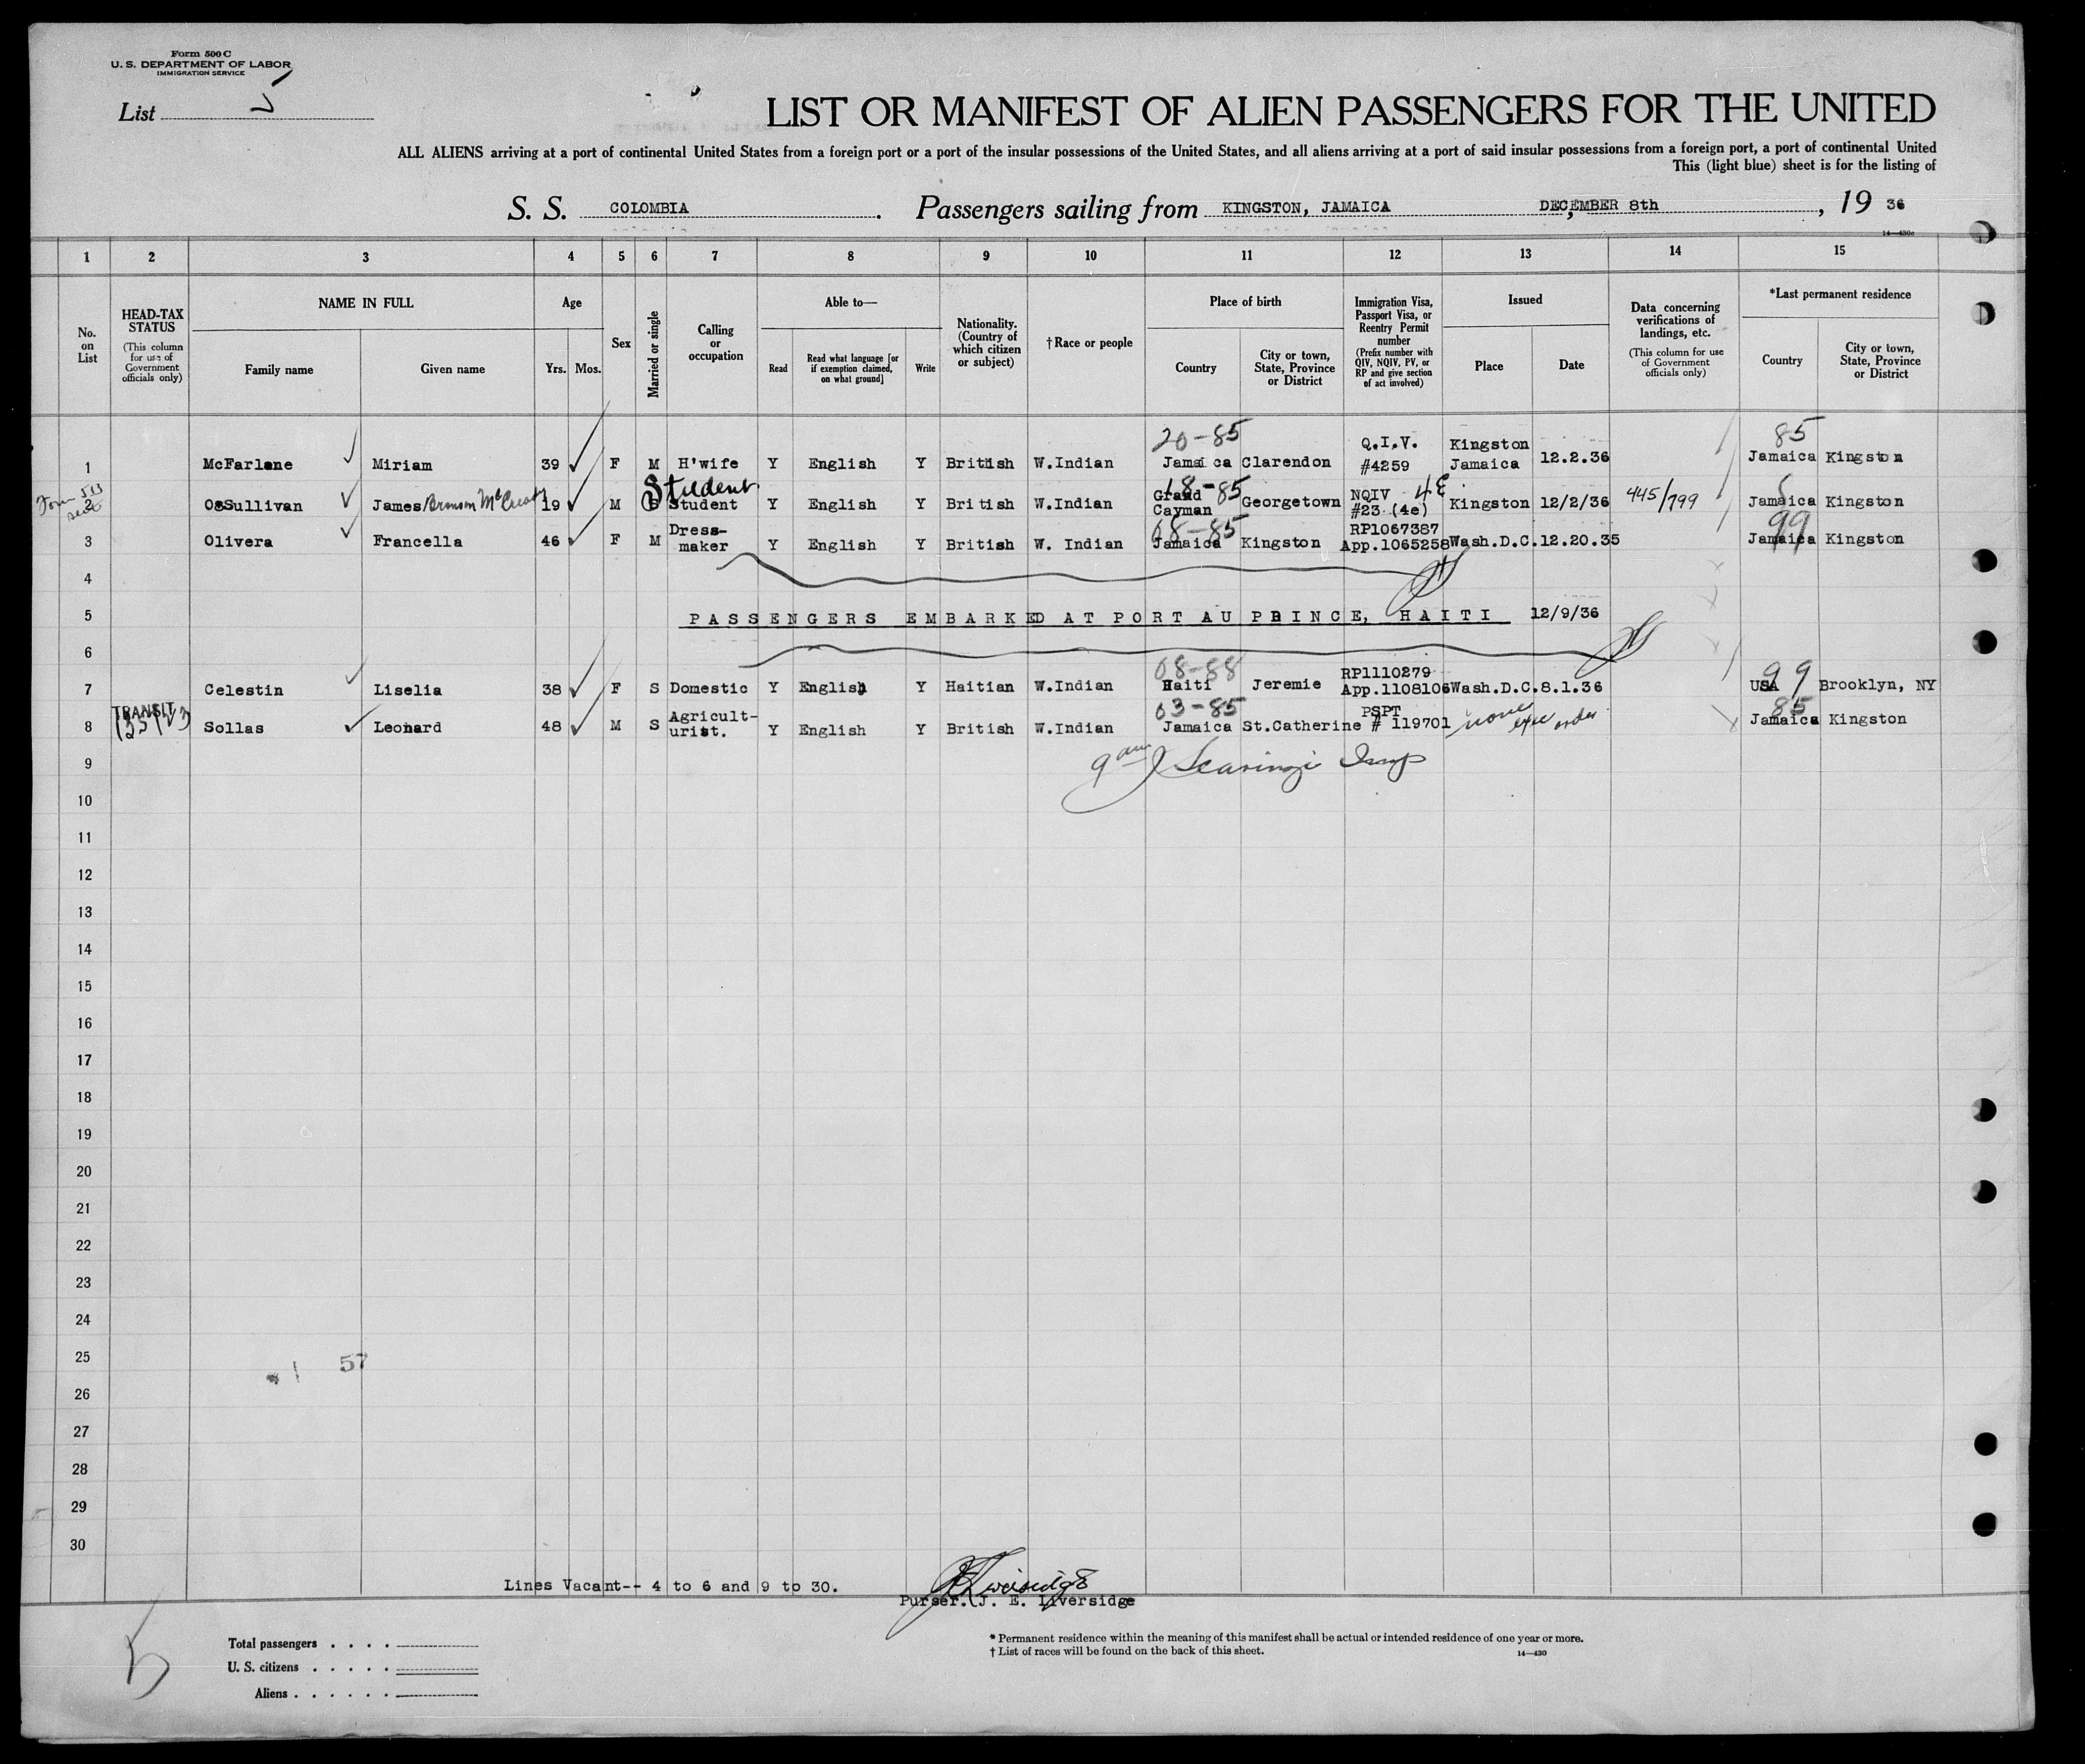 Form 500 C
U. S. DEPARTMENT OF LABOR
IMMIGRATION SERVICE
List 5
LIST OR MANIFEST OF ALIEN PASSENGERS FOR THE UNITED
ALL ALIENS arriving at a port of continental United States from a foreign port or a port of the insular possessions of the United States, and all aliens arriving at a port of said insular possessions from a foreign port, a port of continental United
This (light blue) sheet is for the listing of
S. S. COLOMBIA. Passengers sailing from KINGSTON, JAMAICA, DECEMBER 8th, 19 36
14—430c
1 2 3 4 5 6 7 8 9 10 11 12 13 14 15
No. on List
HEAD-TAX STATUS
(This column for use of Government officials only)
NAME IN FULL
Family name Given name
Age
Yrs. Mos.
Sex
Married or single
Calling or occupation
Able to—
Read
Read what language [or if exemption claimed, on what ground]
Write
Nationality. (Country of which citizen or subject)
†Race or people
Place of birth
Country
City or town, State, Province or District
Immigration Visa, Passport Visa, or Reentry Permit number
(Prefix number with QIV, NQIV, PV, or RP and give section of act involved)
Issued
Place Date
Data concerning verifications of landings, etc.
(This column for use of Government officials only)
*Last permanent residence
Country
City or town, State, Province or District
20-85 85
1 McFarlane Miriam 39 F M H'wife Y English Y British W.Indian Jamaica Clarendon Q.I.V. #4259 Kingston Jamaica 12.2.36 Jamaica Kingston
Student 18-85 4E
2 O'Sullivan James 19 M S Student Y English Y British W.Indian Grand Cayman Georgetown NQIV #23 (4e) Kingston 12/2/36 445/799 Jamaica Kingston
08-85 99
3 Olivera Francella 46 F M Dress-maker Y English Y British W. Indian Jamaica Kingston RP1067387 App.1065258 Wash.D.C. 12.20.35 Jamaica Kingston
4
5 PASSENGERS EMBARKED AT PORT AU PRINCE, HAITI 12/9/36
6
08-88 99
7 Celestin Liselia 38 F S Domestic Y English Y Haitian W.Indian Haiti Jeremie RP1110279 App.1108106 Wash.D.C. 8.1.36 USA Brooklyn, NY
TRANSIT 03-85 85
8 Sollas Leonard 48 M S Agricult-urist. Y English Y British W.Indian Jamaica St.Catherine PSPT # 119701 none exec order Jamaica Kingston
9
10
11
12
13
14
15
16
17
18
19
20
21
22
23
24
25 57
26
27
28
29
30
Lines Vacant-- 4 to 6 and 9 to 30.
Purser. J. E. Liversidge
5
Total passengers . . . .
U. S. citizens . . . . .
Aliens . . . . . .
* Permanent residence within the meaning of this manifest shall be actual or intended residence of one year or more.
† List of races will be found on the back of this sheet. 14—430